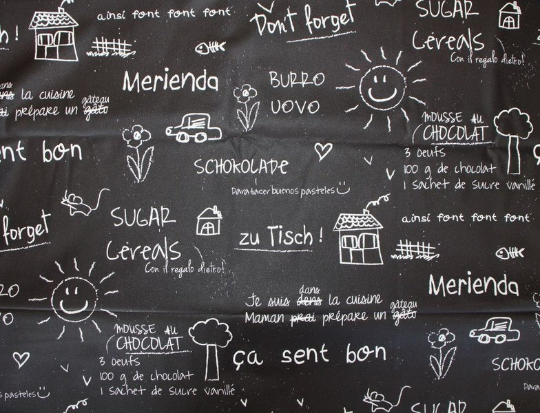 h!
ainsi font font font
Don't forget
SUGAR
Cereals
Con il regalo dietro!
Merienda
BURRO
UOVO
dans
dans la cuisine
gâteau
prai prépare un gato
MOUSSE AU
CHOCOLAT
3 oeufs
100 g de chocolat
1 sachet de sucre vanillé
ent bon
SCHOKOLADE
Para hacer buenos pasteles
forget
SUGAR
Cereals
Con il regalo dietro!
zu Tisch!
ainsi font font font
Merienda
ZO
O
dans
Je suis dans la cuisine
gâteau
Maman prai prépare un gato
MOUSSE AU
CHOCOLAT
3 oeufs
100 g de chocolat
1 sachet de sucre vanillé
ça sent bon
SCHOKO
pasteles